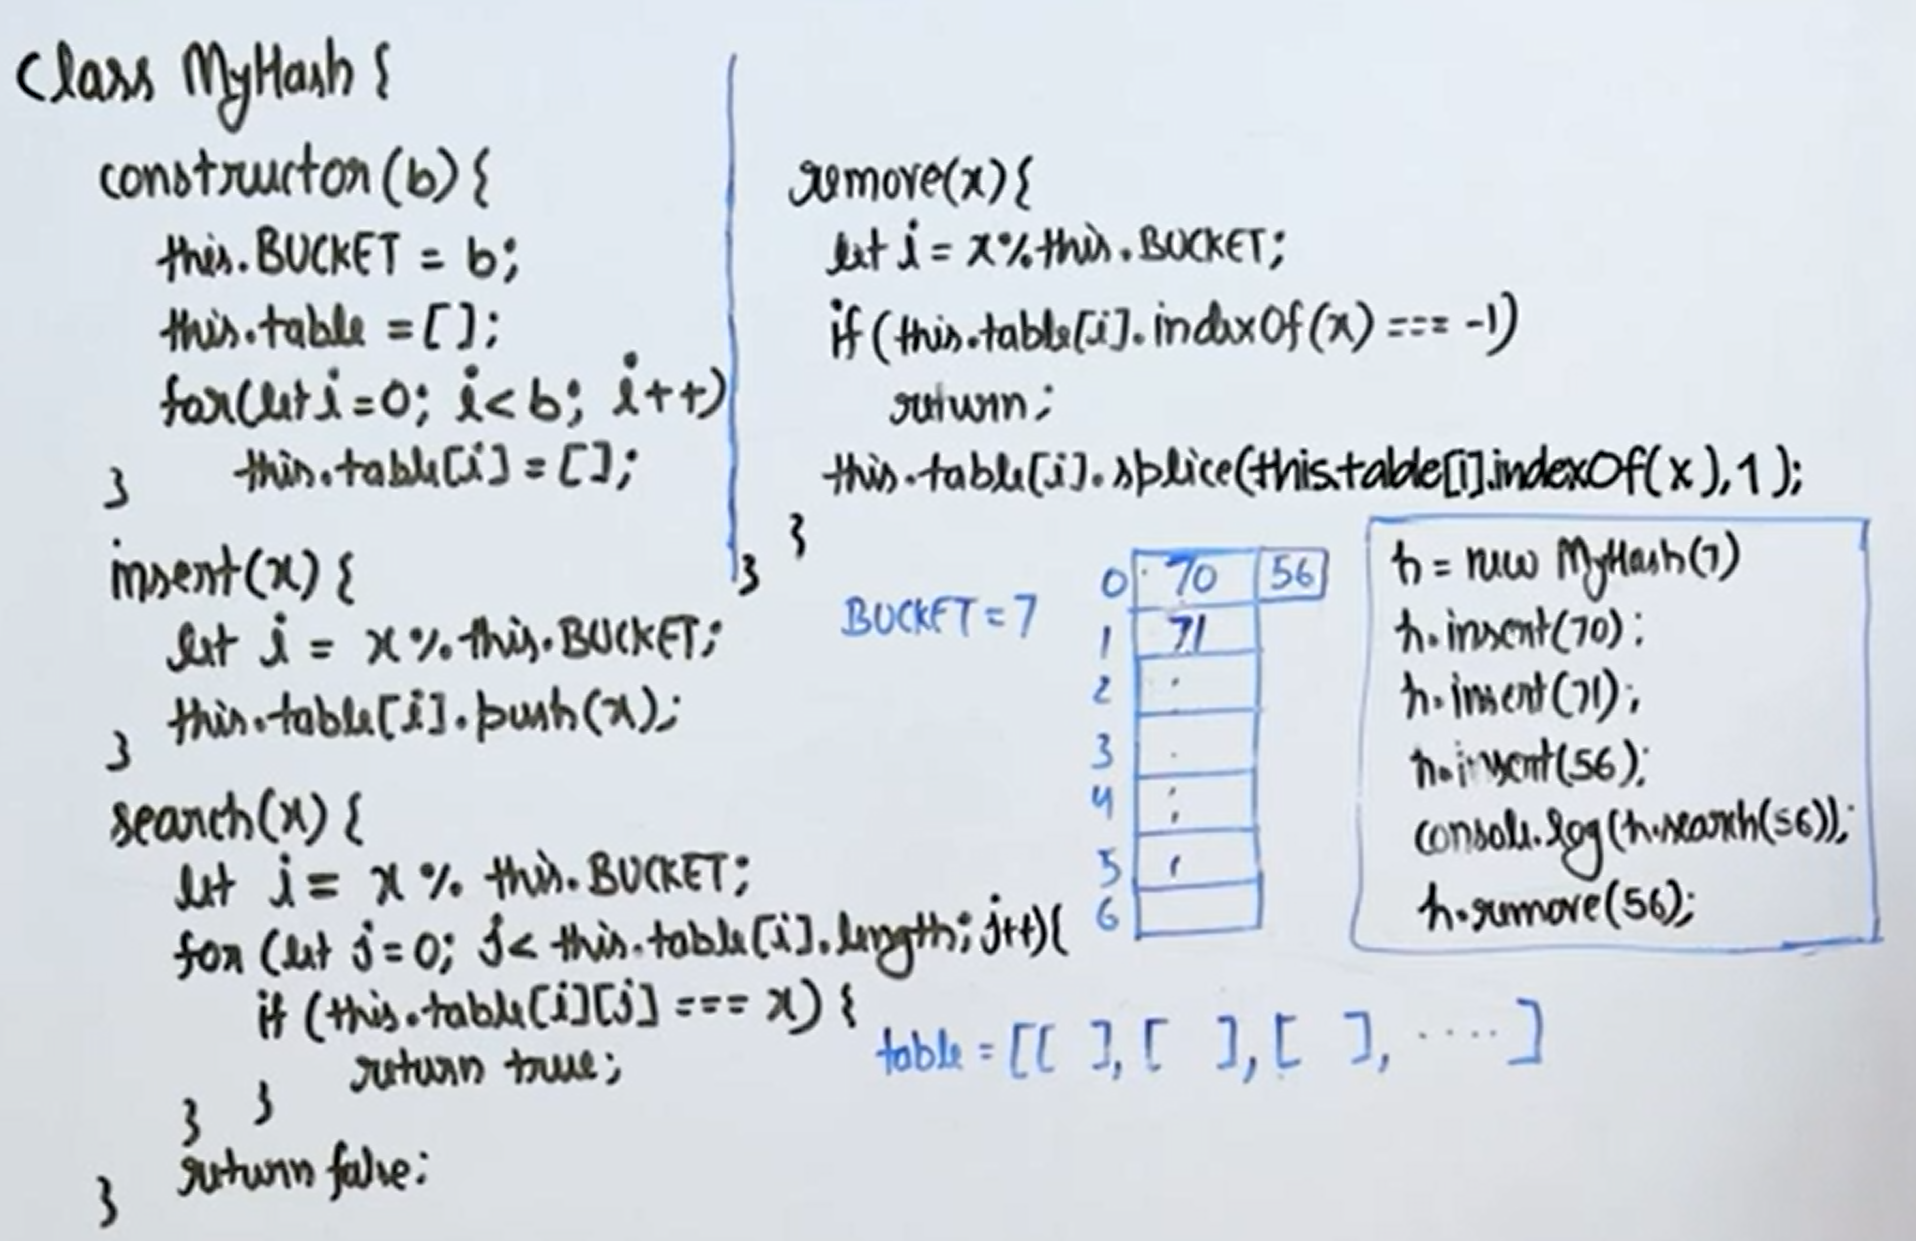 class MyHash {
constructor(b) {
this.BUCKET = b;
this.table = [];
for(let i=0; i<b; i++)
this.table[i] = [];
}
insert(x) {
let i = x % this.BUCKET;
this.table[i].push(x);
}
search(x) {
let i = x % this.BUCKET;
for (let j=0; j< this.table[i].length; j++){
if (this.table[i][j] === x) {
return true;
} }
return false;
}
remove(x) {
let i = x % this.BUCKET;
if (this.table[i].indexOf(x) === -1)
return;
this.table[i].splice(this.table[i].indexOf(x),1);
}
}
BUCKET = 7
0 70 56
1 71
2
3
4
5
6
table = [[ ], [ ], [ ], ....]
h = new MyHash(7)
h.insert(70);
h.insert(71);
h.insert(56);
console.log(h.search(56));
h.remove(56);